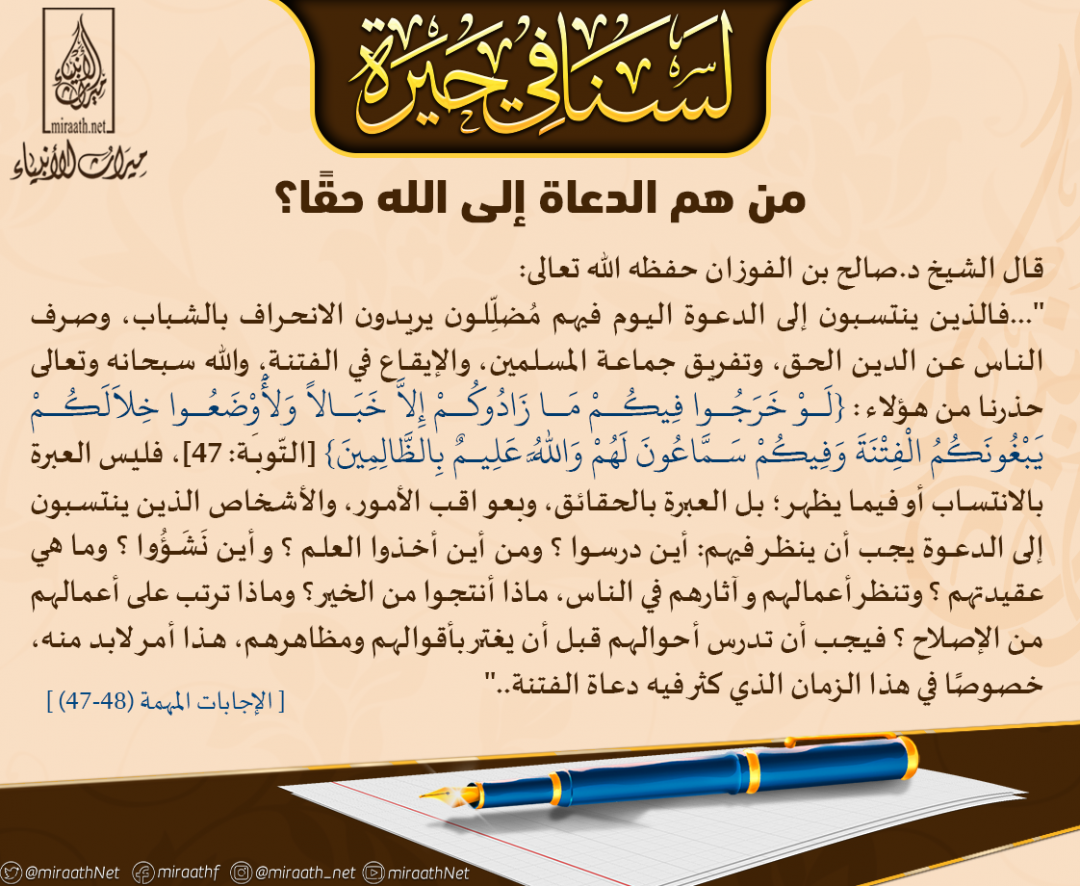 لسنا في حيرة
ميراث الأنبياء
miraath.net
ميراث الأنبياء
من هم الدعاة إلى الله حقًا؟
قال الشيخ د.صالح بن الفوزان حفظه الله تعالى:
"...فالذين ينتسبون إلى الدعوة اليوم فيهم مُضلِّلون يريدون الانحراف بالشباب، وصرف
الناس عن الدين الحق، وتفريق جماعة المسلمين، والإيقاع في الفتنة، والله سبحانه وتعالى
حذرنا من هؤلاء: {لَوْ خَرَجُوا فِيكُمْ مَا زَادُوكُمْ إِلاَّ خَبَالاً وَلأَوْضَعُوا خِلاَلَكُمْ
يَبْغُونَكُمُ الْفِتْنَةَ وَفِيكُمْ سَمَّاعُونَ لَهُمْ وَاللهُ عَلِيمٌ بِالظَّالِمِينَ} [التّوبَة: 47]، فليس العبرة
بالانتساب أو فيما يظهر؛ بل العبرة بالحقائق، وبعو اقب الأمور، والأشخاص الذين ينتسبون
إلى الدعوة يجب أن ينظر فيهم: أين درسوا ؟ ومن أين أخذوا العلم ؟ وأين نَشَؤُوا ؟ وما هي
عقيدتهم ؟ وتنظر أعمالهم و آثارهم في الناس، ماذا أنتجوا من الخير؟ وماذا ترتب على أعمالهم
من الإصلاح ؟ فيجب أن تدرس أحوالهم قبل أن يغتر بأقوالهم ومظاهرهم، هذا أمر لابد منه،
خصوصًا في هذا الزمان الذي كثر فيه دعاة الفتنة.."
[ الإجابات المهمة (47-48) ]
@miraathNet miraathf @miraath_net miraathNet